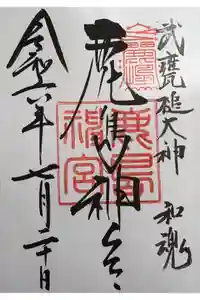 武甕槌大神 和魂
鹿島神宮
鹿島
神宮
令和六年七月二十日